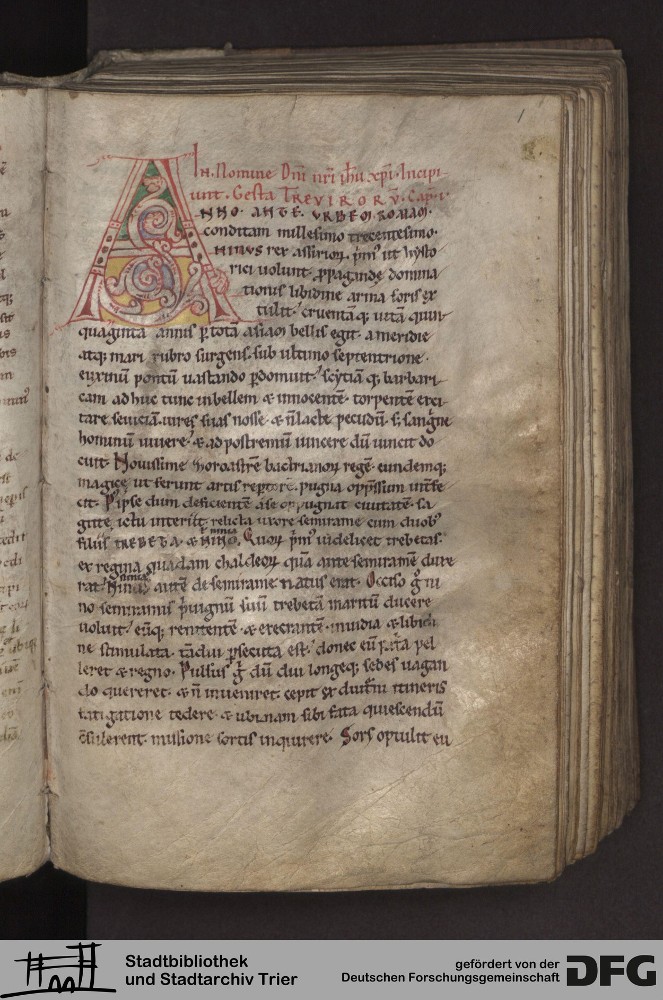 1
In. Nomine Dni nri ihu xpi. Incipi
unt. Gesta TREVIRORV. Cap. i.
ANNO. ANTE. URBEM. ROMAM.
conditam millesimo trecentesimo.
NINUS rex assirioꝝ. pm' ut hysto
rici uolunt. ppagandę domina
tionis libidine arma foris ex
tulit. cruentāq; uitā quin
quaginta annis p totā asiam bellis egit. a meridie
atq; mari rubro surgens. sub ultimo septentrione.
euxinū pontū uastando pdomuit. scytiāq; barbari
cam adhuc tunc inbellem & innocentē. torpentē exci
tare seuiciā. uires suas nosse. & n lacte pecudū. s; sangine
hominū uiuere. & ad postremū uincere dū uincit do
cuit. Nouissime zoroastrē bactrianoꝝ regē. eundemq;
magicę ut ferunt artis reptorē. pugna oppssum intfe
cit. P ipse dum deficientē a se oppugnat ciuitatē. sa
gittę ictu interiit. relicta uxore semirame cum duob'
filiis TREBETA & NINO. Quoꝝ pm' uidelicet trebetas.
ninia
ex regina quadam chaldeoꝝ quā ante semiramē duxe
rat. Ninus autē de semirame natus erat. Occiso g ni
ninias
no semiramis puignū suū trebetā maritū ducere
uoluit. eūq; renitentē & execrantē. inuidia & libidi
ne stimulata. tādiu psecuta est. donec eū patria pel
leret & regno. Pulsus g dū diu longeq; sedes uagan
do quereret. & n inueniret. cepit ex diuturni itineris
fatigatione tedere. & ubinam sibi fata quiescendū
csulerent. missione sortis inquirere. Sors optulit eu
Stadtbibliothek
und Stadtarchiv Trier
gefördert von der
Deutschen Forschungsgemeinschaft
DFG